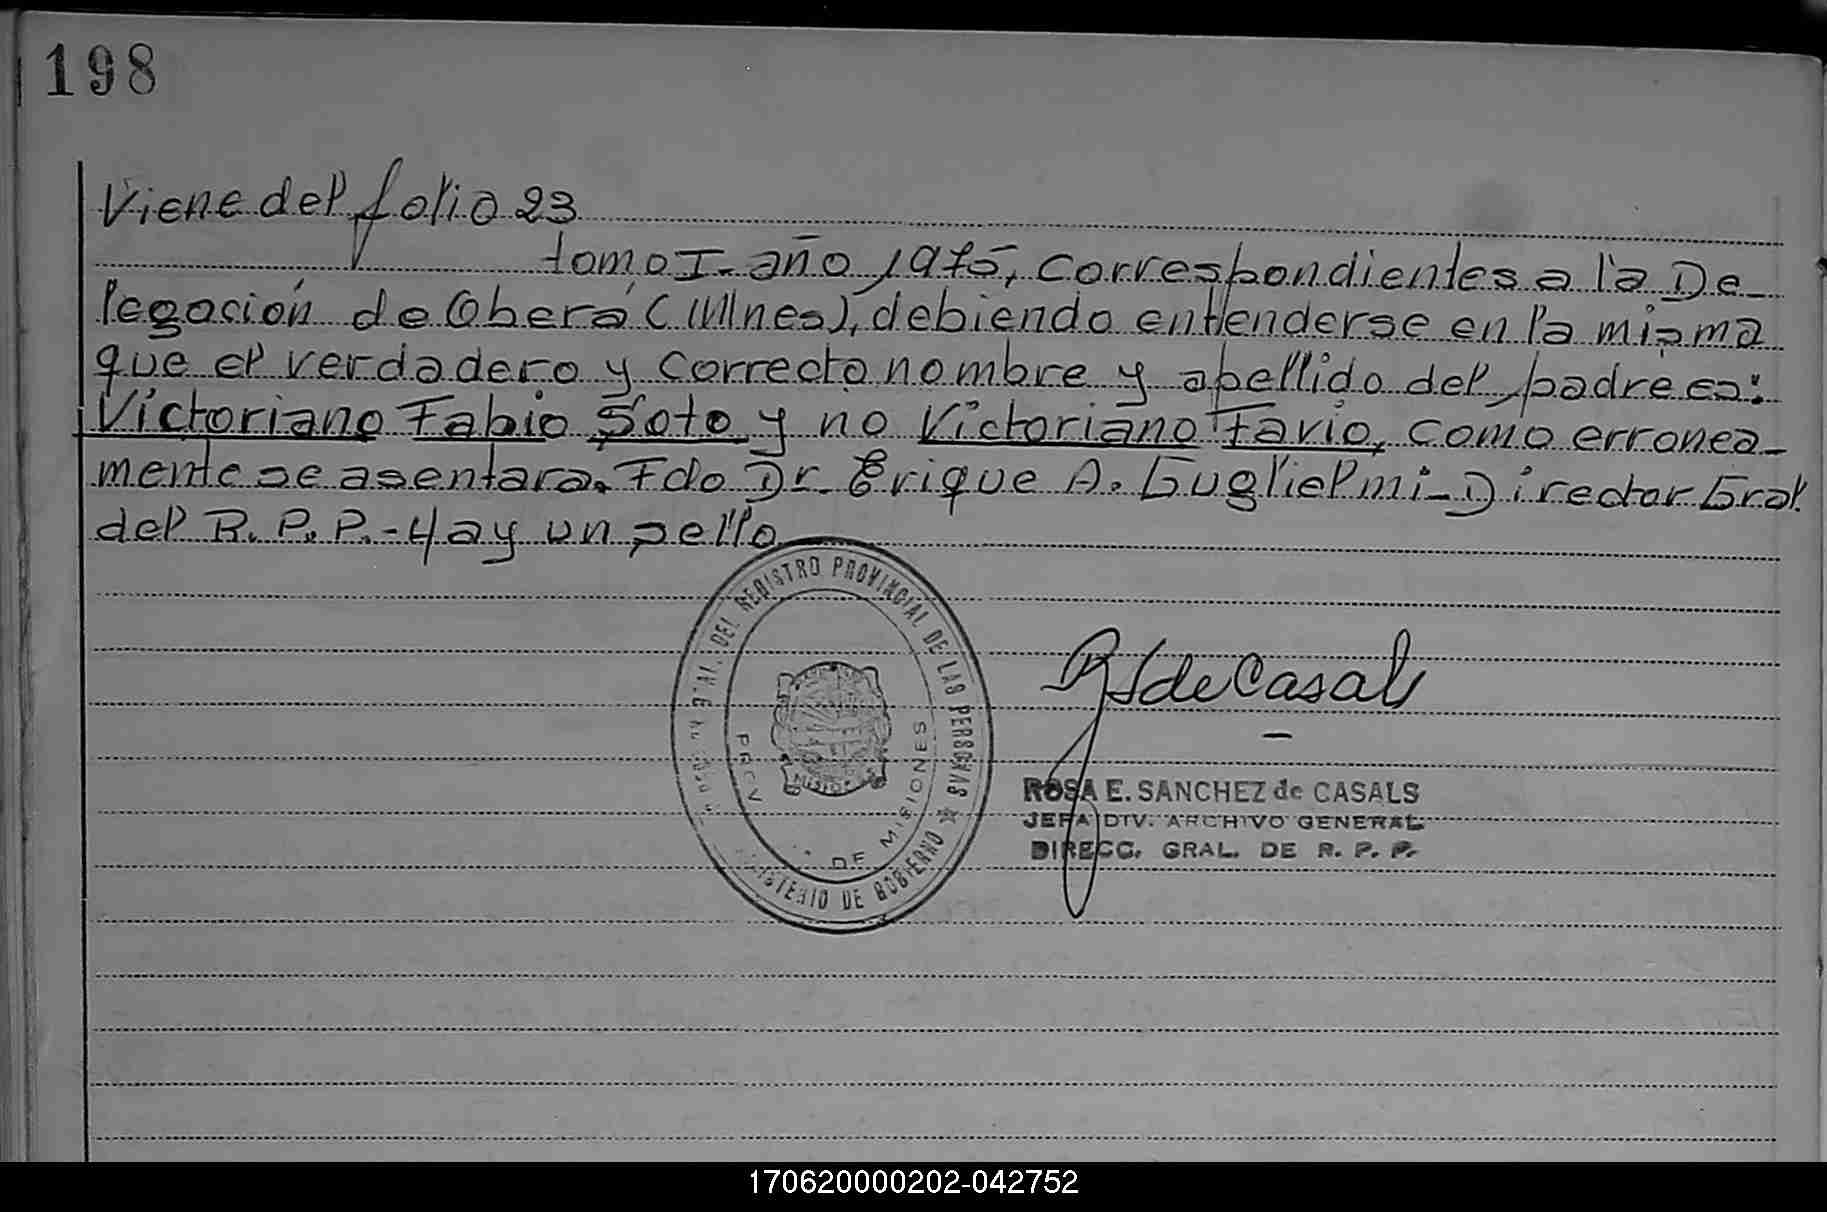 198
Viene del folio 23
tomo I - año 1975, correspondientes a la De-
legación de Oberá (Mnes), debiendo entenderse en la misma
que el verdadero y correcto nombre y apellido del padre es:
Victoriano Fabio Soto y no Victoriano Favio, como erronea-
mente se asentara. Fdo Dr. Erique A. Guglielmi - Director Gral.
del R. P. P. - Hay un sello
GRAL. DEL REGISTRO PROVINCIAL DE LAS PERSONAS
MINISTERIO DE GOBIERNO
PROV. DE MISIONES
MISIONES
RS de Casals
ROSA E. SANCHEZ de CASALS
JEFA DIV. ARCHIVO GENERAL
DIRECC. GRAL. DE R. P. P.
170620000202-042752